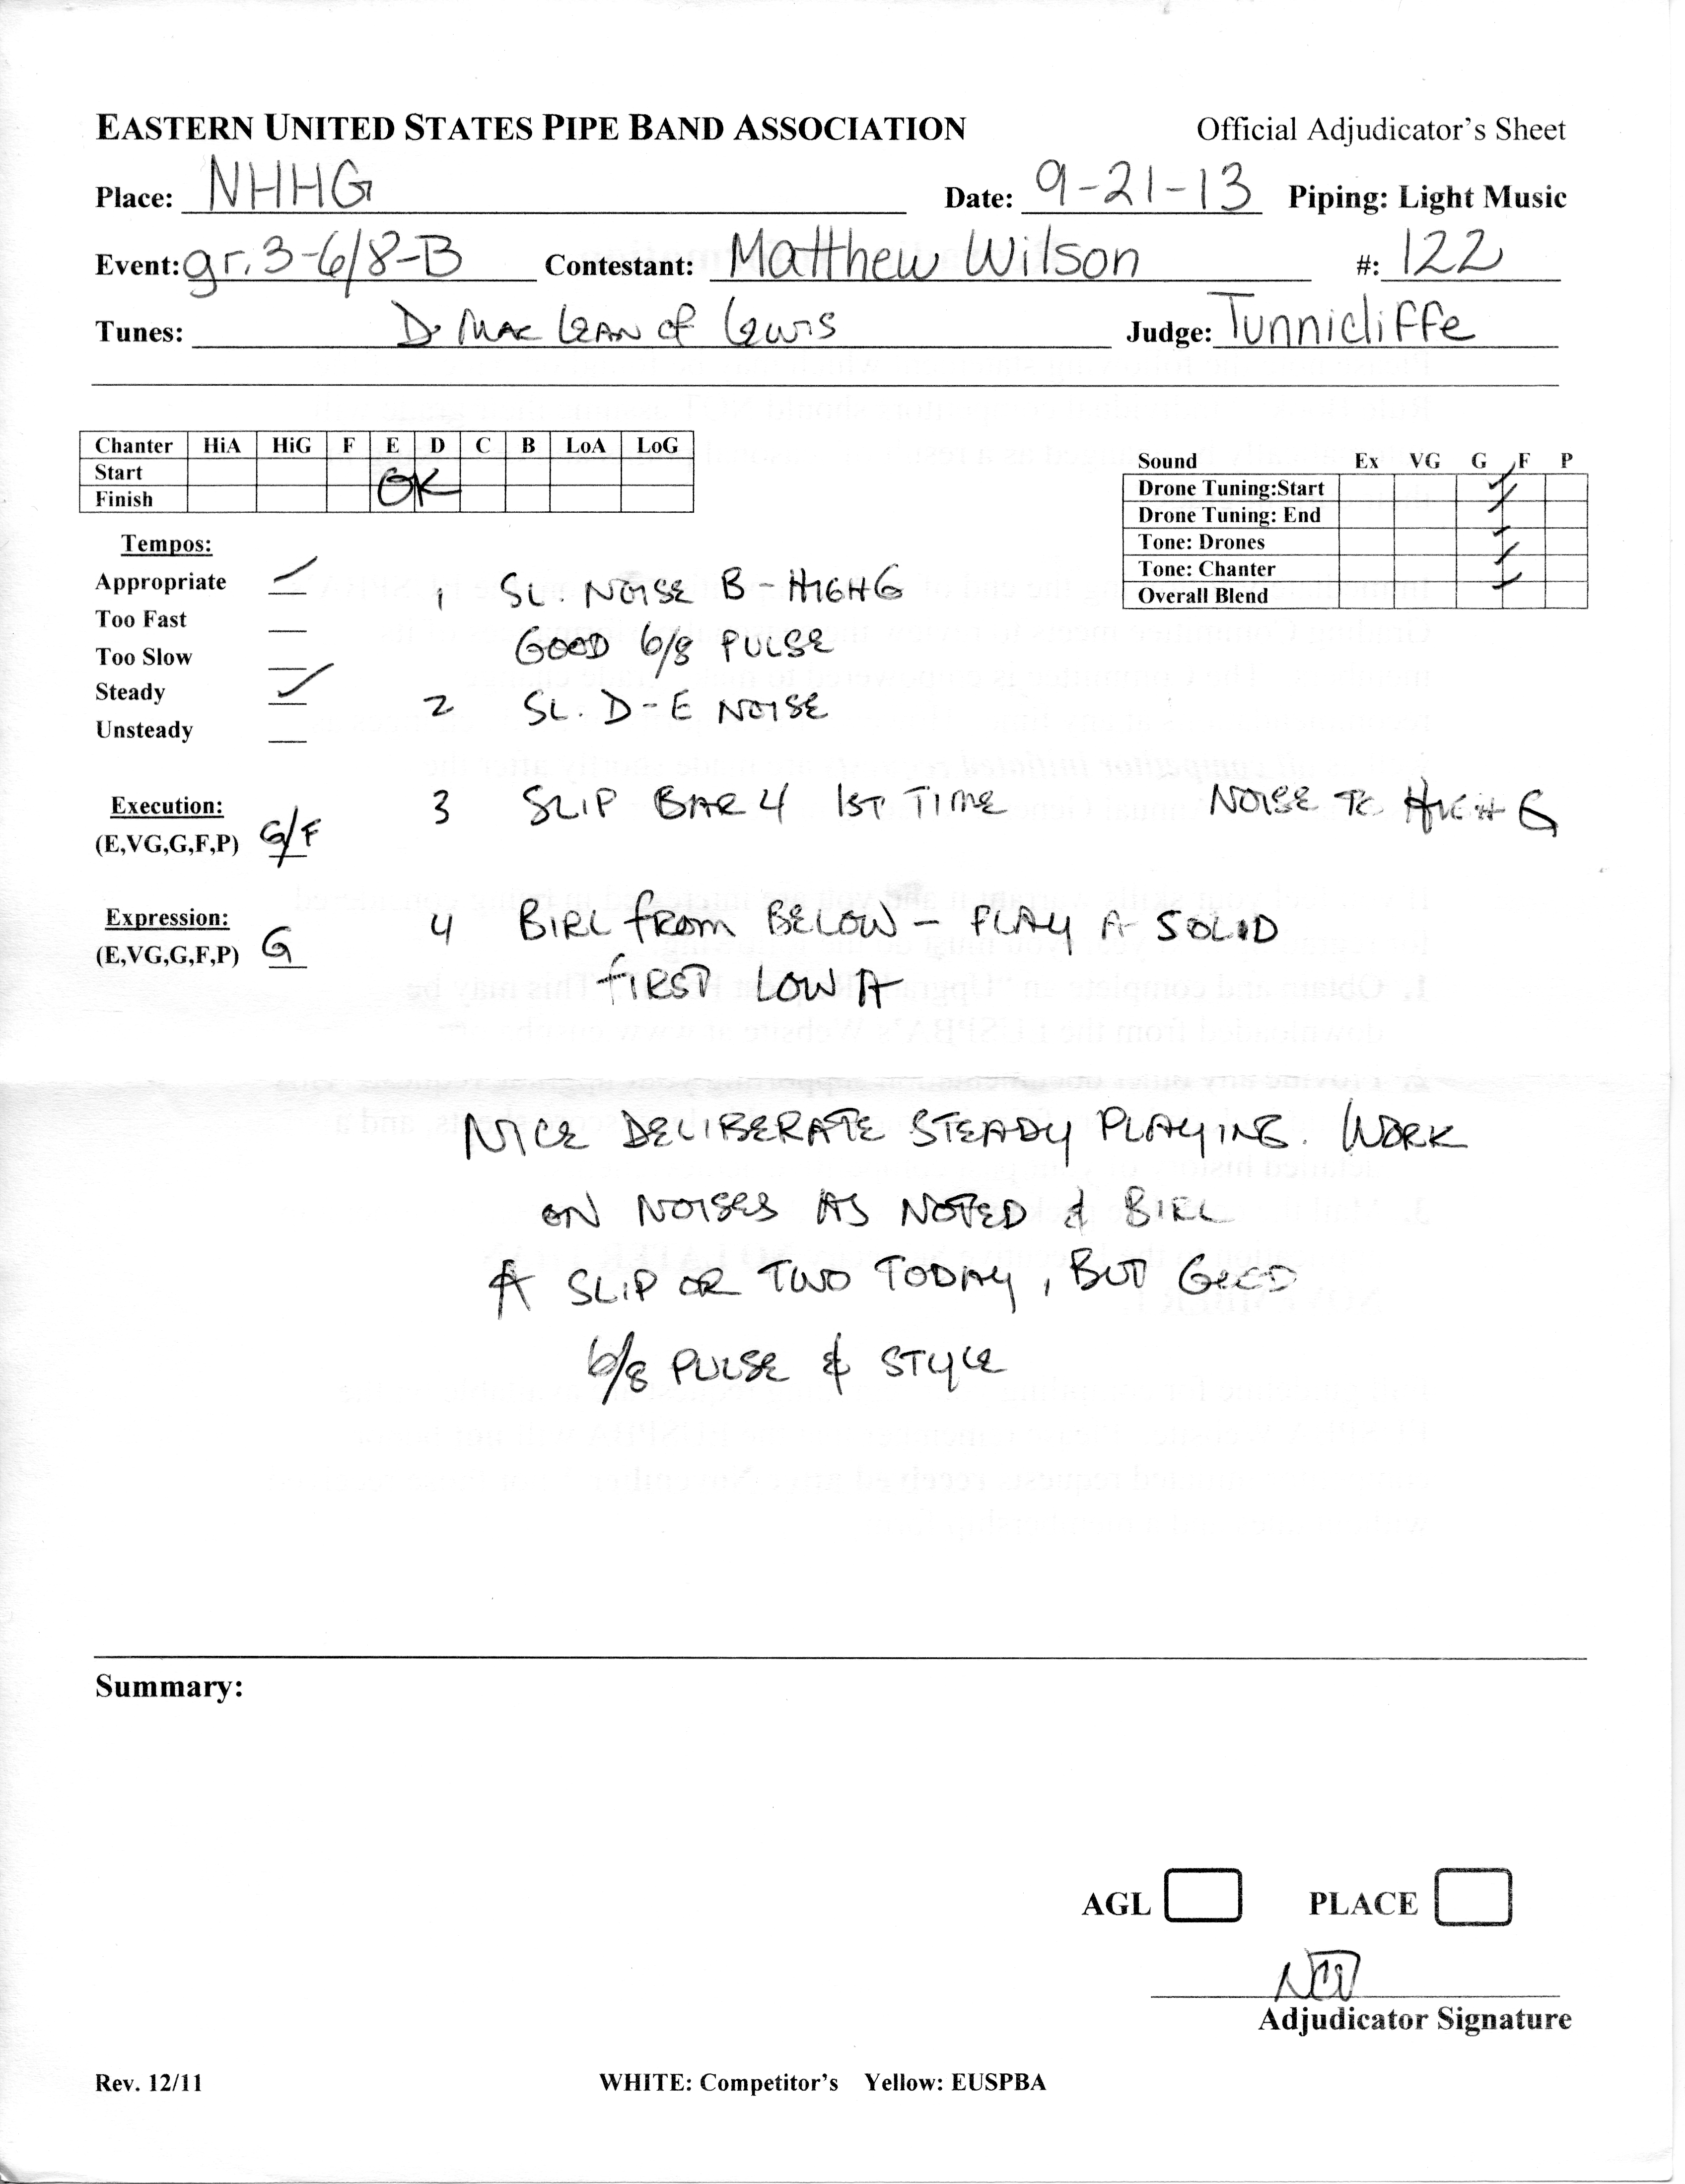 EASTERN UNITED STATES PIPE BAND ASSOCIATION Official Adjudicator's Sheet
Place: NHHG Date: 9-21-13 Piping: Light Music
Event: gr. 3-6/8-B Contestant: Matthew Wilson #: 122
Tunes: D. MAC LEAN of LEWIS Judge: Tunnicliffe
Chanter HiA HiG F E D C B LoA LoG
Start
Finish
OK
Sound Ex VG G F P
Drone Tuning:Start
Drone Tuning: End
Tone: Drones
Tone: Chanter
Overall Blend
Tempos:
Appropriate
Too Fast
Too Slow
Steady
Unsteady
1 SL. NOISE B - HIGH G
GOOD 6/8 PULSE
2 SL. D-E NOISE
Execution:
(E,VG,G,F,P) G/F
3 SLIP BAR 4 1ST TIME NOISE TO HIGH G
Expression:
(E,VG,G,F,P) G
4 BIRL FROM BELOW - PLAY A SOLID
FIRST LOW A
NICE DELIBERATE STEADY PLAYING. WORK
ON NOISES AS NOTED & BIRL
A SLIP OR TWO TODAY, BUT GOOD
6/8 PULSE & STYLE
Summary:
AGL PLACE
Adjudicator Signature
Rev. 12/11 WHITE: Competitor's Yellow: EUSPBA